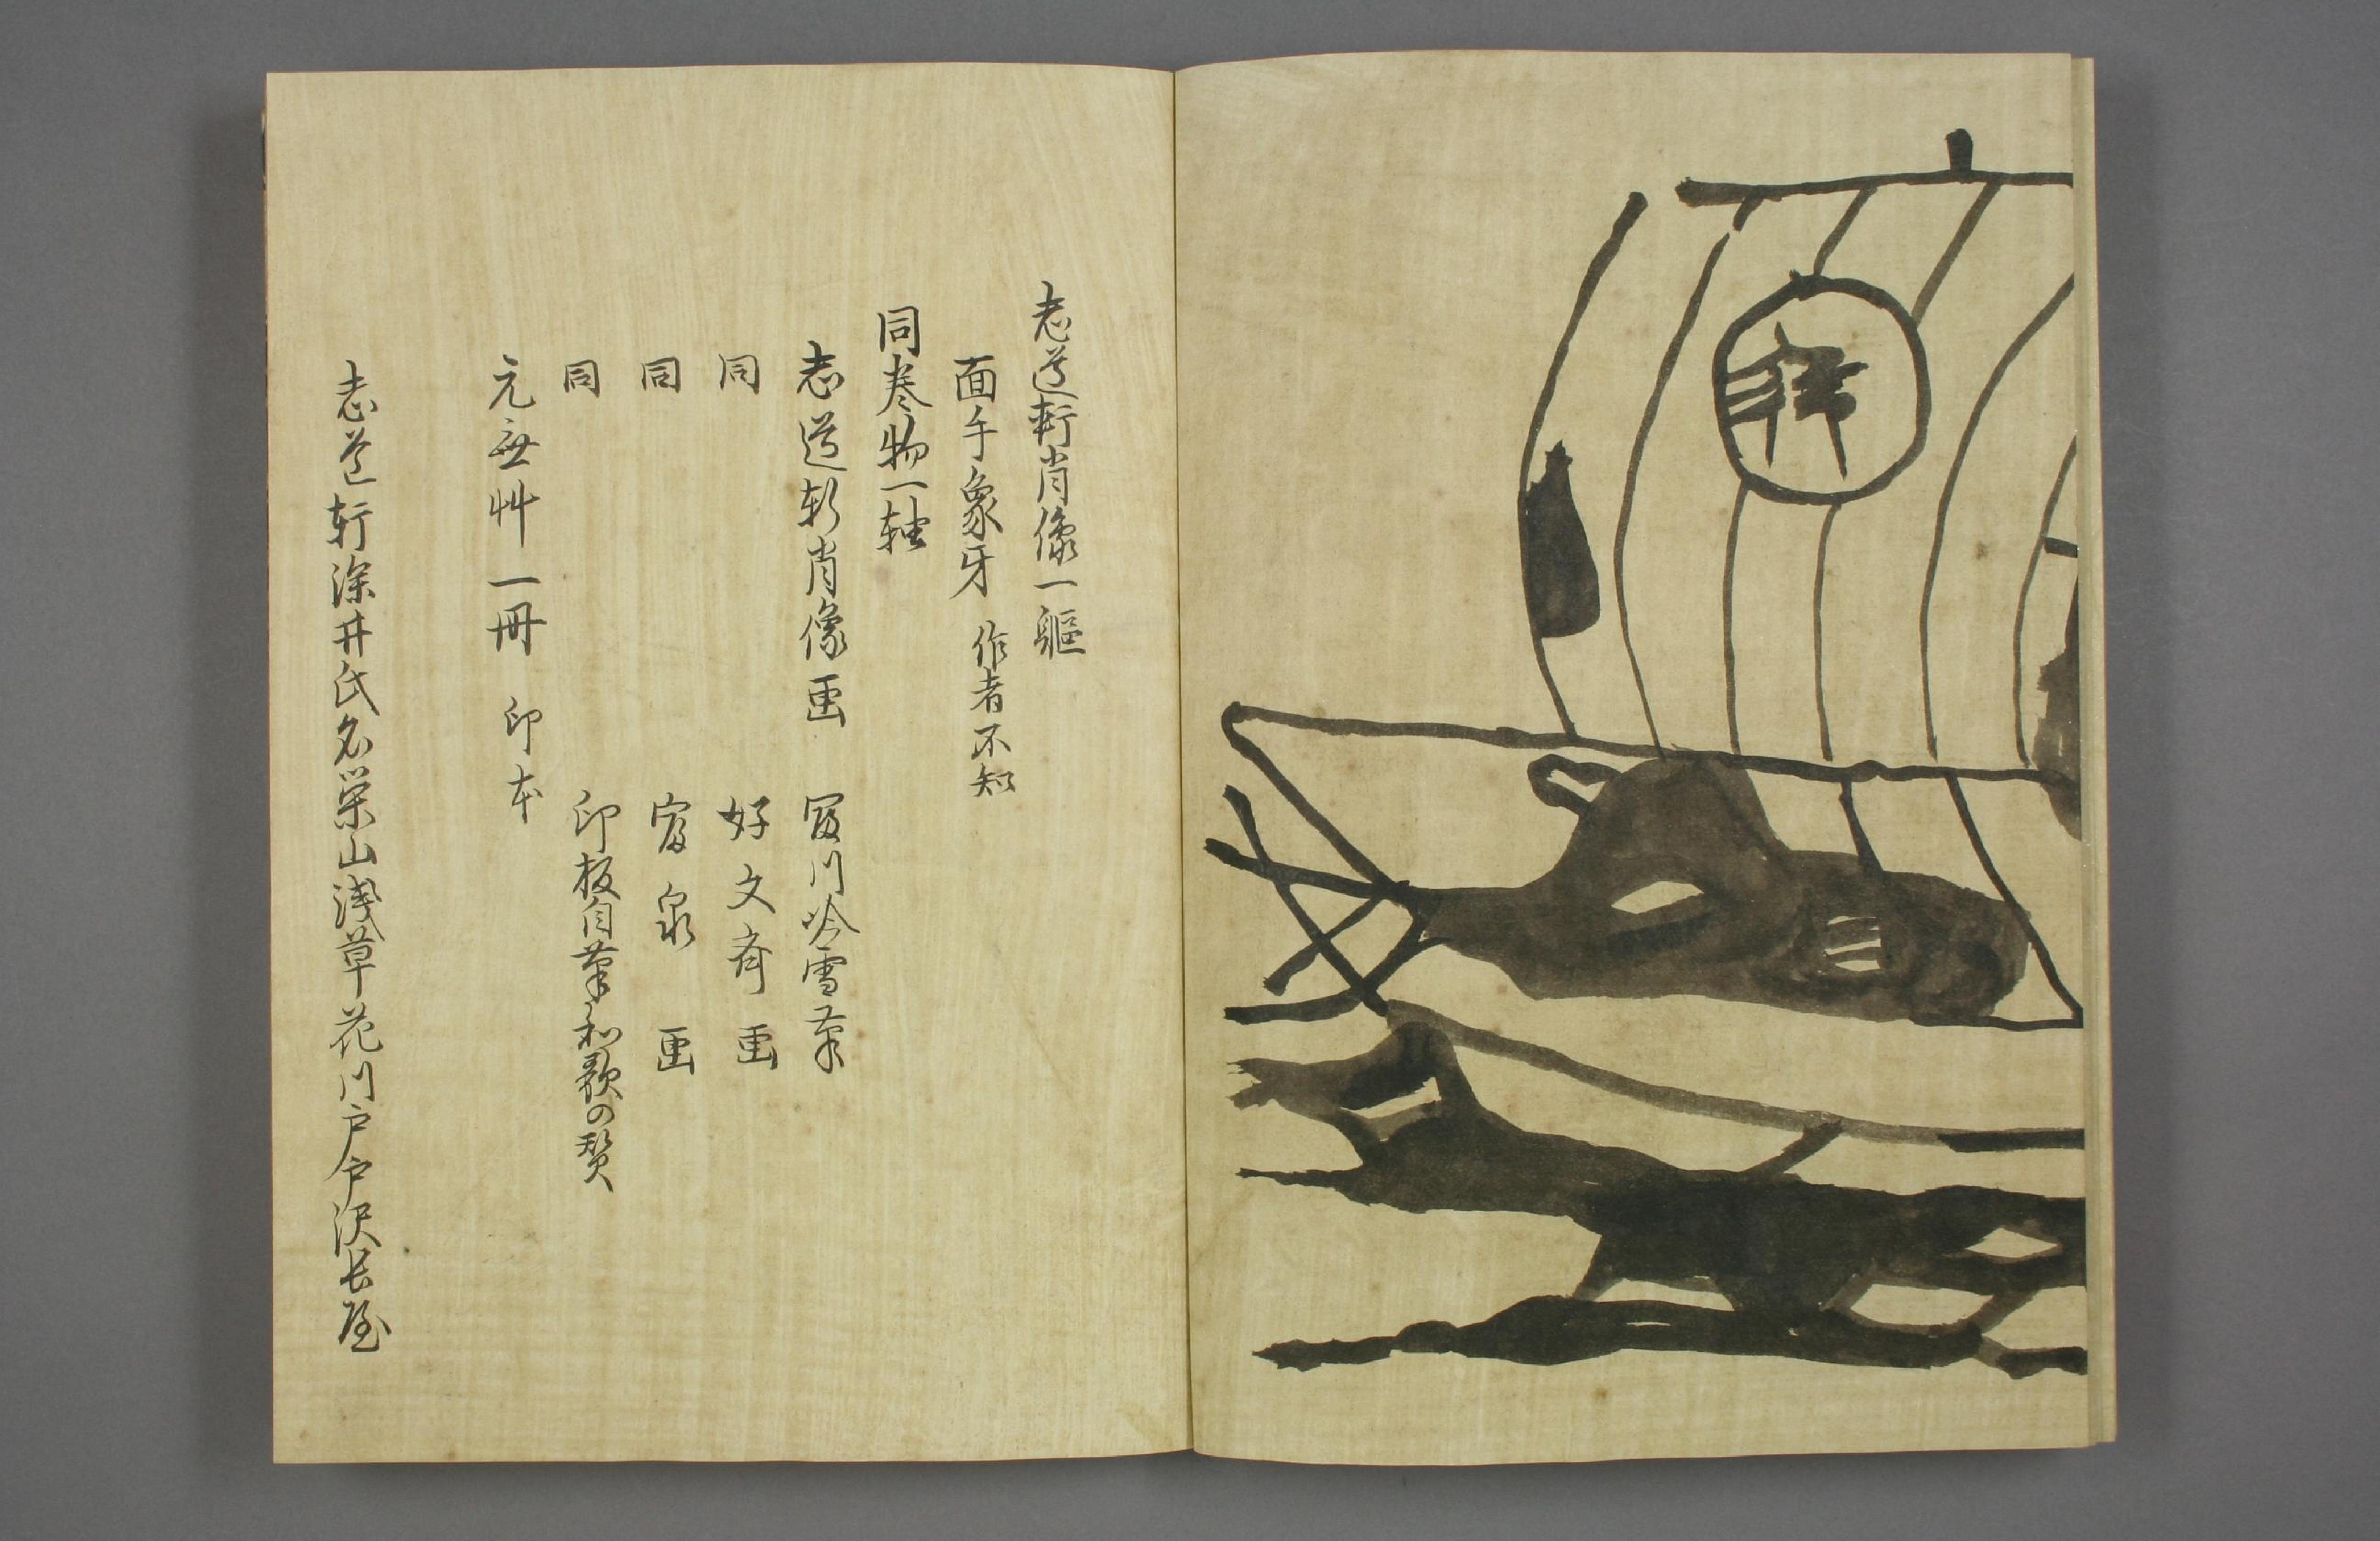 志道軒肖像一躯
面手象牙 作者不知
同巻物一軸
志道軒肖像画 冨川吟雪筆
同 好文斎画
同 宮泉画
同 印板自筆和歌の賛
元無艸一冊 印本
志道軒深井氏名栄山浅草花川戸戸沢長屋